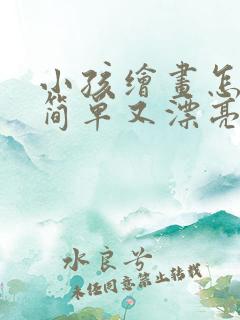 小孩繪畫怎
简单又漂亮
水良兮
未经同意禁止转载